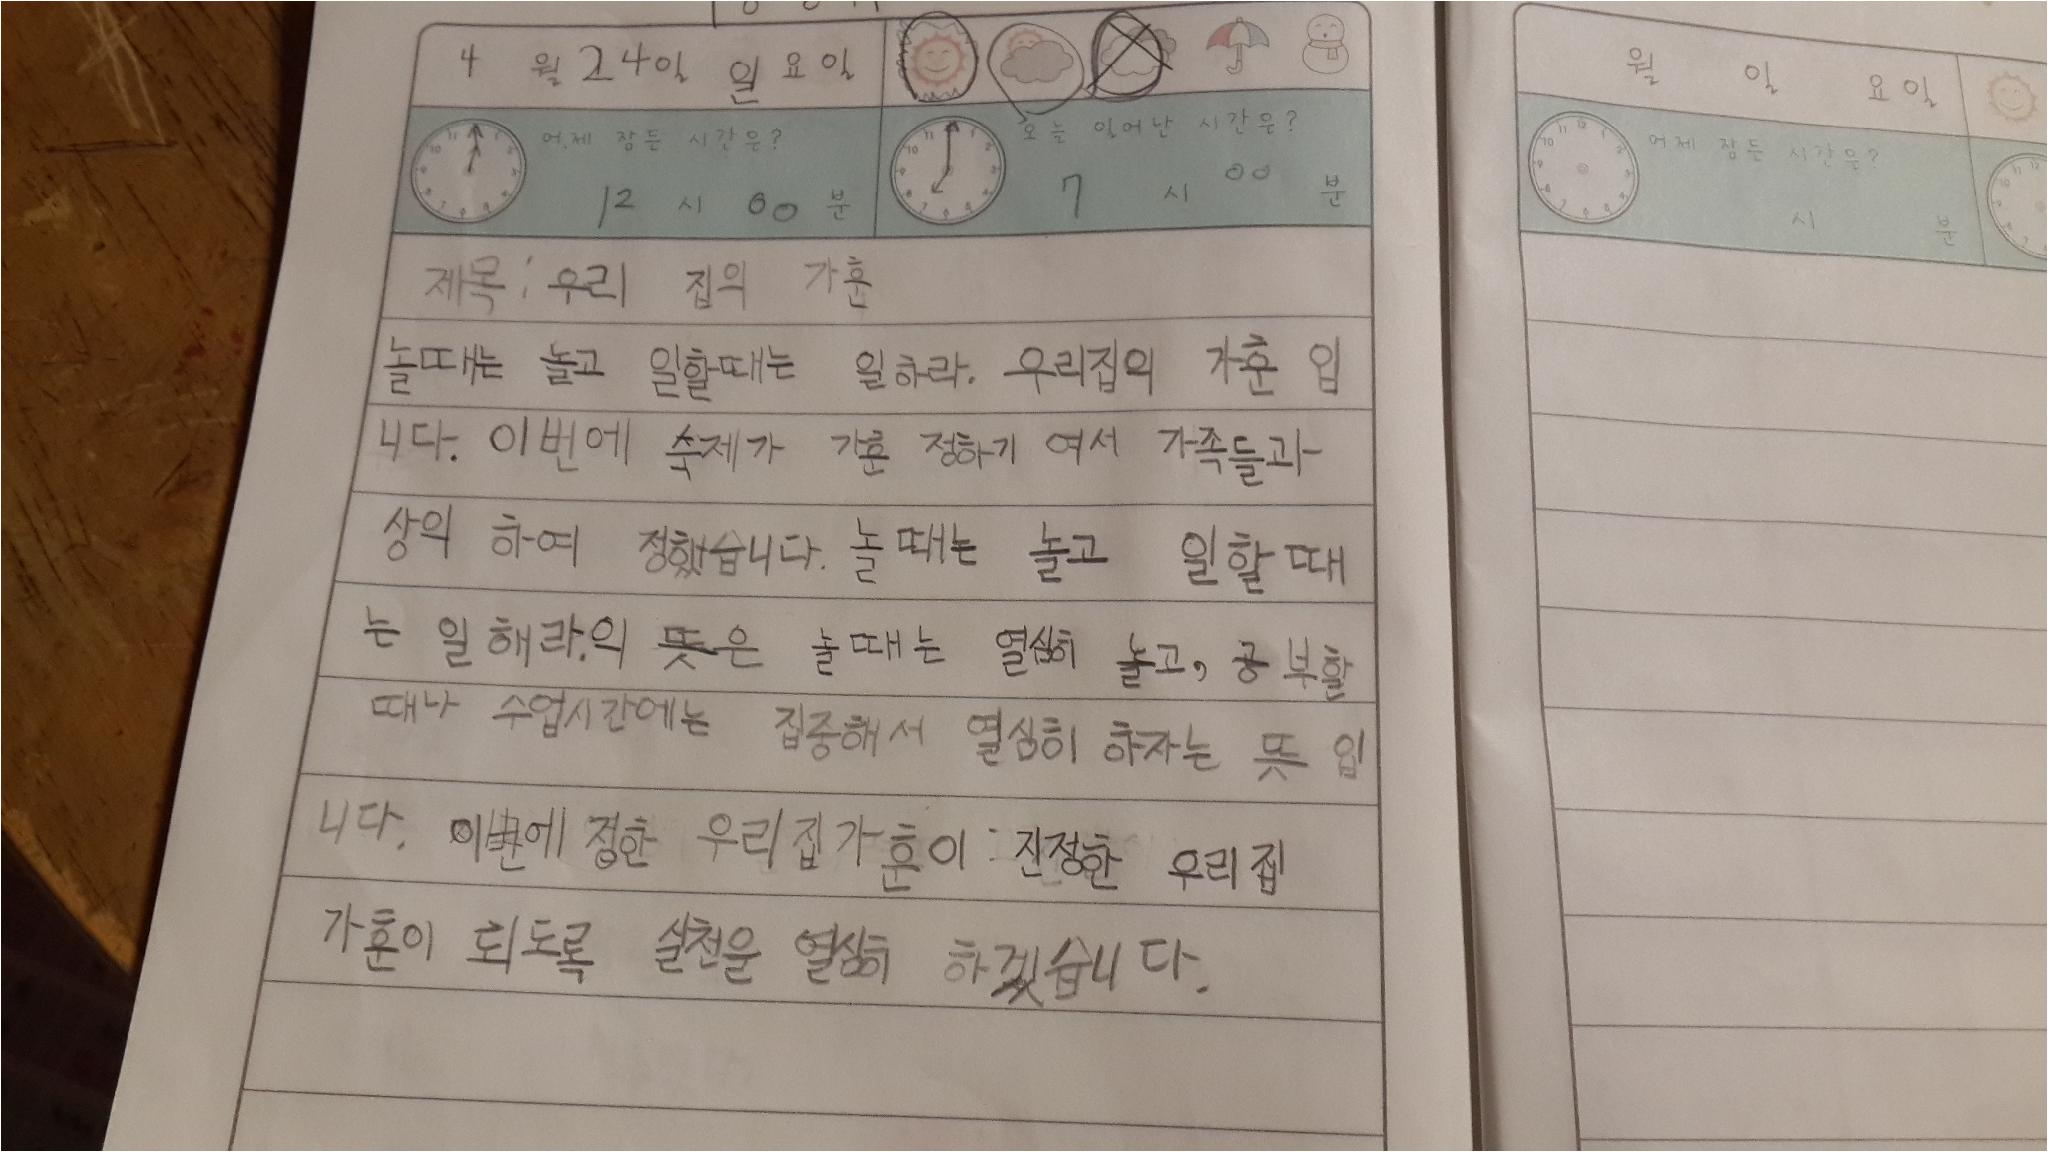 4 월 24일 일 요일
어제 잠든 시간은?
12 시 00 분
오늘 일어난 시간은?
7 시 00 분
제목: 우리 집의 가훈
놀때는 놀고 일할때는 일하라. 우리집의 가훈 입
니다. 이번에 숙제가 가훈 정하기 여서 가족들과
상의 하여 정했습니다. 놀때는 놀고 일할때
는 일해라.의 뜻은 놀때는 열심히 놀고, 공부할
때나 수업시간에는 집중해서 열심히 하자는 뜻 입
니다. 이번에 정한 우리집가훈이 진정한 우리집
가훈이 되도록 실천을 열심히 하겠습니다.
월 일 요일
어제 잠든 시간은?
시 분